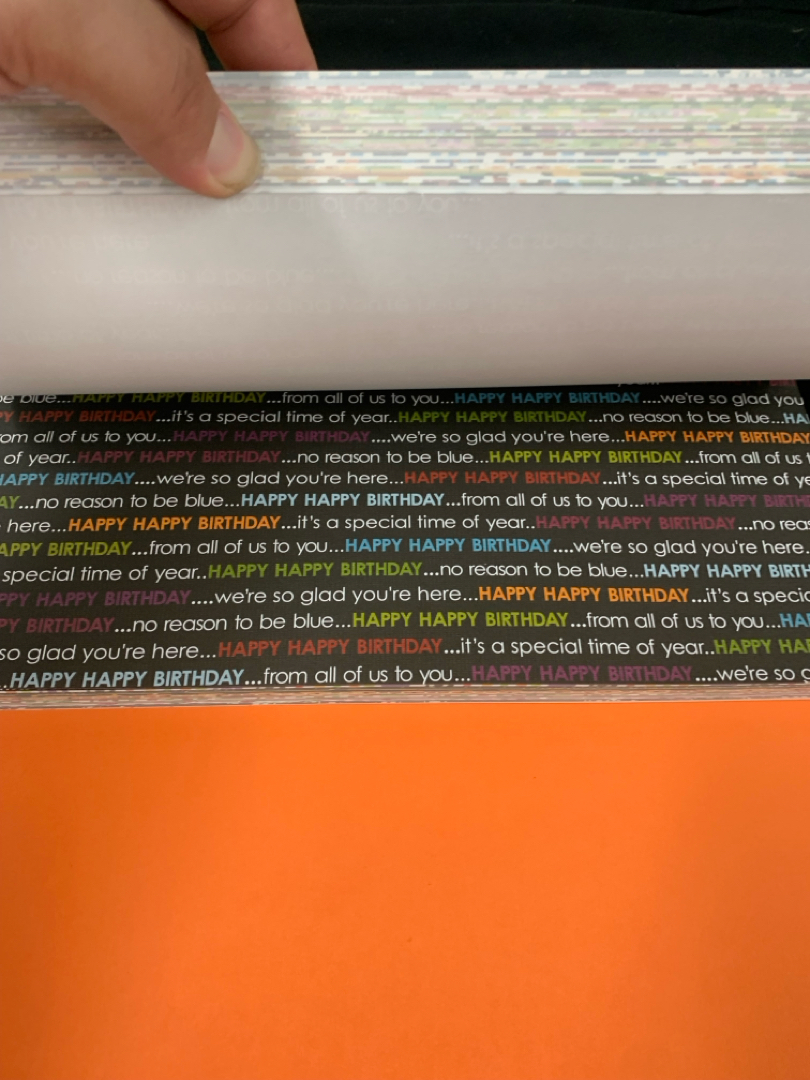 be blue...HAPPY HAPPY BIRTHDAY...from all of us to you...HAPPY HAPPY BIRTHDAY....we're so glad you
HAPPY BIRTHDAY...it's a special time of year..HAPPY HAPPY BIRTHDAY...no reason to be blue...HA
om all of us to you...HAPPY HAPPY BIRTHDAY....we're so glad you're here...HAPPY HAPPY BIRTHDAY
of year..HAPPY HAPPY BIRTHDAY...no reason to be blue...HAPPY HAPPY BIRTHDAY...from all of us
HAPPY BIRTHDAY....we're so glad you're here...HAPPY HAPPY BIRTHDAY...it's a special time of ye
AY...no reason to be blue...HAPPY HAPPY BIRTHDAY...from all of us to you...HAPPY HAPPY BIRTH
here...HAPPY HAPPY BIRTHDAY...it's a special time of year..HAPPY HAPPY BIRTHDAY...no rea
APPY BIRTHDAY...from all of us to you...HAPPY HAPPY BIRTHDAY....we're so glad you're here.
special time of year..HAPPY HAPPY BIRTHDAY...no reason to be blue...HAPPY HAPPY BIRTH
PY HAPPY BIRTHDAY....we're so glad you're here...HAPPY HAPPY BIRTHDAY...it's a specia
PY BIRTHDAY...no reason to be blue...HAPPY HAPPY BIRTHDAY...from all of us to you...HA
so glad you're here...HAPPY HAPPY BIRTHDAY...it's a special time of year..HAPPY HA
..HAPPY HAPPY BIRTHDAY...from all of us to you...HAPPY HAPPY BIRTHDAY....we're so g